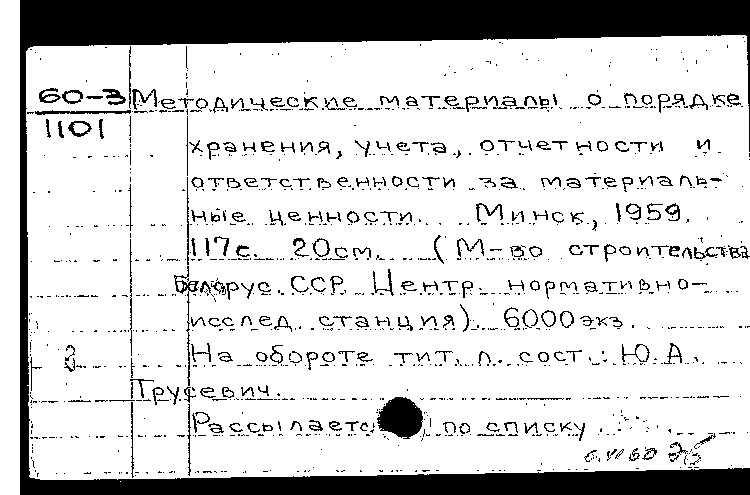 60-3 Методические материалы о порядке
1101
хранения, учета, отчетности и
ответственности за материаль-
ные ценности. Минск, 1959.
117с. 20см. (М-во строительства
Белорус. ССР. Центр. нормативно-
исслед. станция). 6000экз.
На обороте тит. л. сост.: Ю.А.
Трусевич.
по списку.